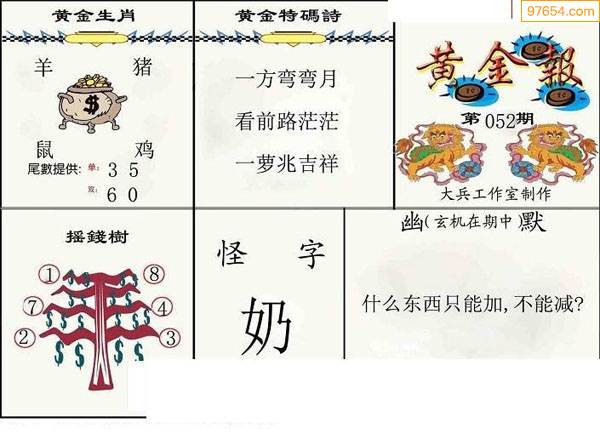 97654.com
黄金生肖
羊 猪
$
鼠 鸡
尾數提供: 单: 3 5
双: 6 0
黄金特碼詩
一方弯弯月
看前路茫茫
一萝兆吉祥
黄金報
第052期
大兵工作室制作
摇錢樹
① ⑧
⑦ ④
② ③
怪 字
奶
幽(玄机在期中)默
什么东西只能加,不能减?